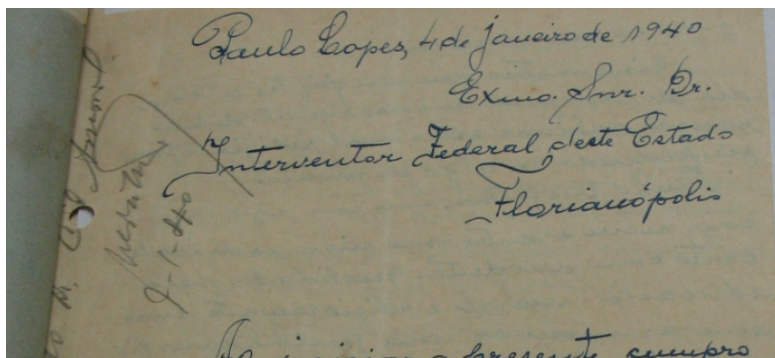 Paulo Lopes, 4 de janeiro de 1940
Exmo. Snr. Dr.
Interventor Federal deste Estado
Florianópolis
9-1-40
presente cumpro